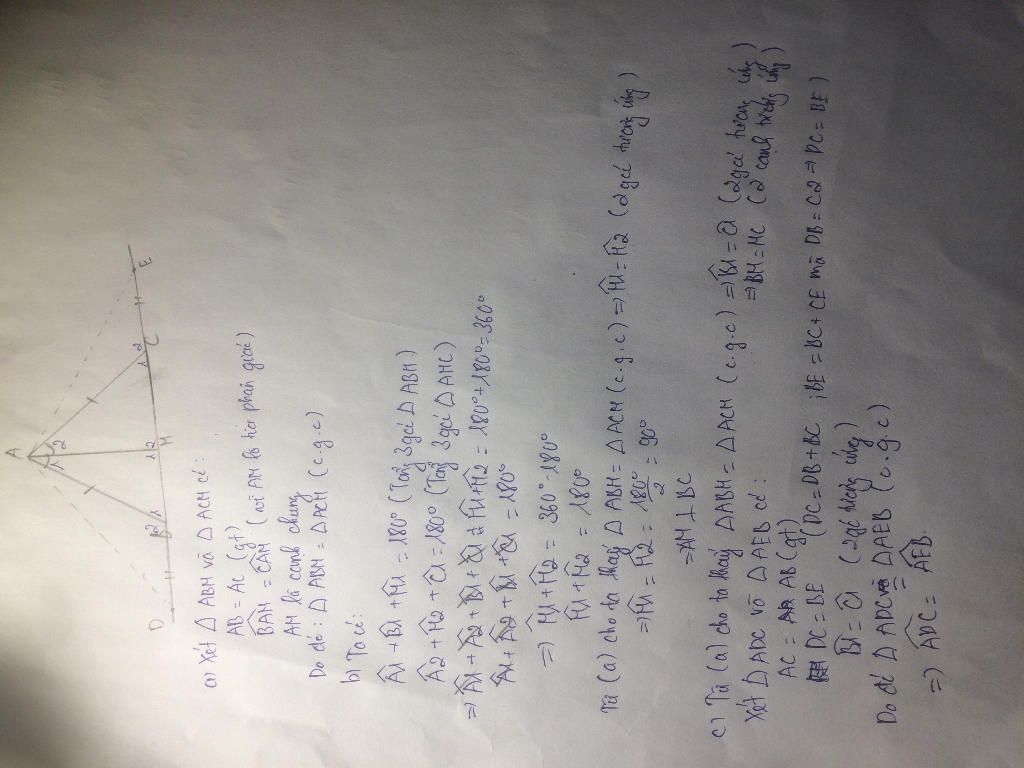 A
1 2
D H B 2 1 1 2 M 1 2 C H E
a) Xét Δ ABM và Δ ACM có:
AB = AC (gt)
BAM = CAM (vì AM là tia phân giác)
AM là cạnh chung
Do đó: Δ ABM = Δ ACM (c.g.c)
b) Ta có:
Â1 + B̂1 + M̂1 = 180° (Tổng 3 góc Δ ABM)
Â2 + M̂2 + Ĉ1 = 180° (Tổng 3 góc Δ AMC)
⇒ Â1 + Â2 + B̂1 + Ĉ1 + M̂1 + M̂2 = 180° + 180° = 360°
Â1 + Â2 + B̂1 + Ĉ1 = 180°
⇒ M̂1 + M̂2 = 360° - 180°
M̂1 + M̂2 = 180°
Từ (a) cho ta thấy Δ ABM = Δ ACM (c.g.c) ⇒ M̂1 = M̂2 (2 góc tương ứng)
⇒ M̂1 = M̂2 = 180°/2 = 90°
⇒ AM ⊥ BC
c) Từ (a) cho ta thấy Δ ABM = Δ ACM (c.g.c) ⇒ B̂1 = Ĉ1 (2 góc tương ứng)
⇒ BM = MC (2 cạnh tương ứng)
Xét Δ ADC và Δ AEB có:
AC = AB (gt)
DC = BE (DC = DB + BC ; BE = BC + CE mà DB = C2 ⇒ DC = BE)
B̂1 = Ĉ1 (2 góc tương ứng)
Do đó Δ ADC = Δ AEB (c.g.c)
⇒ ADC = AEB